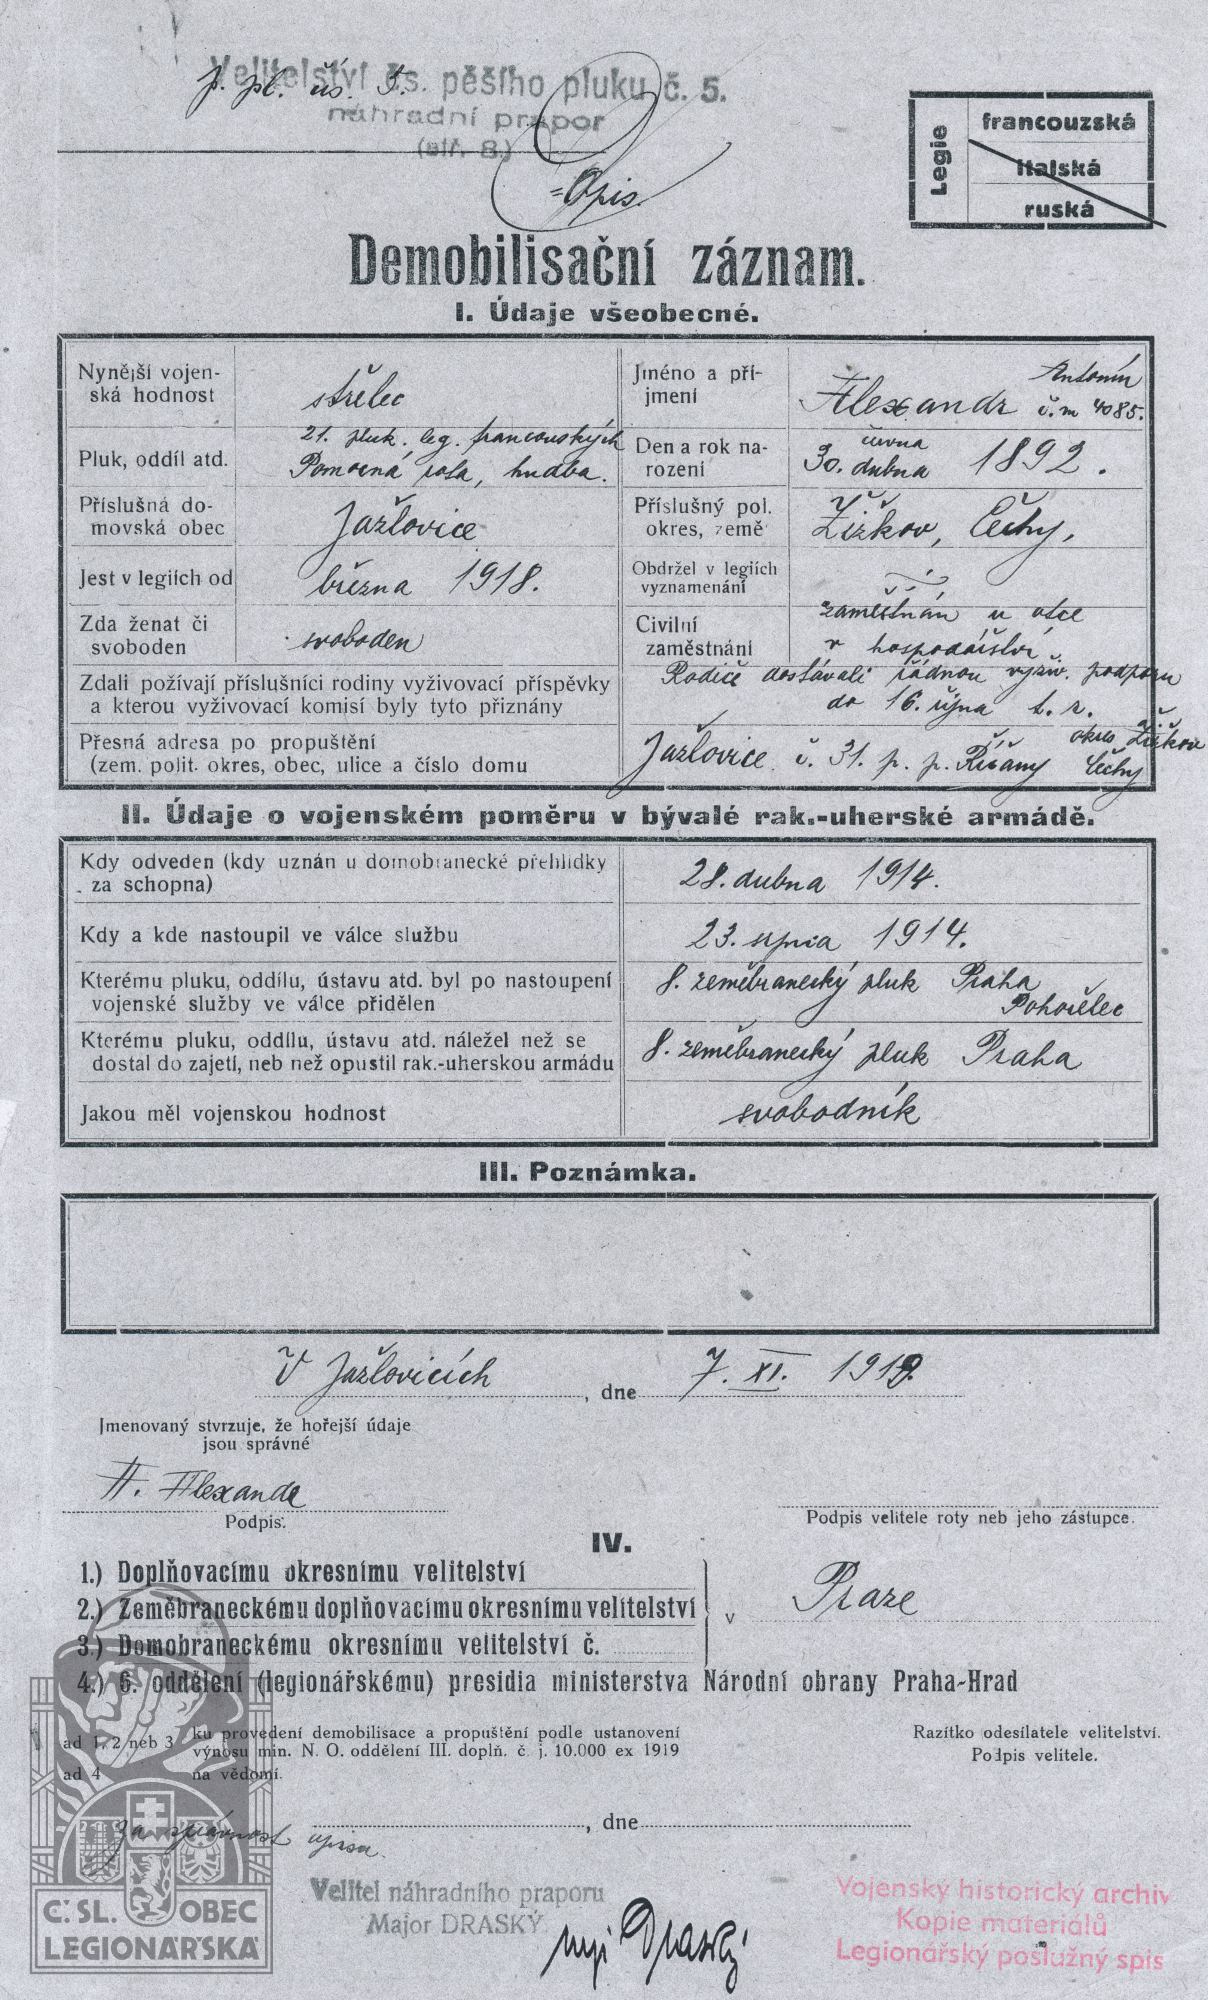 Velitelství čs. pěšího pluku č. 5.
p. pl. čís. 5.
náhradní prapor
(stř. 8.)
=Opis.
Legie
francouzská
italská
ruská
Demobilisační záznam.
I. Údaje všeobecné.
Nynější vojen-
ská hodnost
střelec
Jméno a pří-
jmení
Antonín
Alexandr č. m 4085.
Pluk, oddíl atd.
21. pluk. leg. francouských
Pomocná rota, hudba.
Den a rok na-
rození
června
30. dubna 1892.
Příslušná do-
movská obec
Jažlovice
Příslušný pol.
okres, země
Žižkov, Čechy,
Jest v legiích od
března 1918.
Obdržel v legiích
vyznamenání
Zda ženat či
svoboden
svoboden
Civilní
zaměstnání
zaměstnán u otce
v hospodářství
Zdali požívají příslušníci rodiny vyživovací příspěvky
a kterou vyživovací komisí byly tyto přiznány
Rodiče dostávali řádnou vyživ. podporu
do 16. října t. r.
Přesná adresa po propuštění
(zem. polit. okres, obec, ulice a číslo domu
okres Žižkov
Jažlovice č. 31. p. p. Říčany Čechy
II. Údaje o vojenském poměru v bývalé rak.-uherské armádě.
Kdy odveden (kdy uznán u domobranecké přehlídky
za schopna)
28. dubna 1914.
Kdy a kde nastoupil ve válce službu
23. srpna 1914.
Kterému pluku, oddílu, ústavu atd. byl po nastoupení
vojenské služby ve válce přidělen
8. zeměbranecký pluk Praha
Pohořelec
Kterému pluku, oddílu, ústavu atd. náležel než se
dostal do zajetí, neb než opustil rak.-uherskou armádu
8. zeměbranecký pluk Praha
Jakou měl vojenskou hodnost
svobodník
III. Poznámka.
V Jažlovicích, dne 7. XI. 1919.
Jmenovaný stvrzuje, že hořejší údaje
jsou správné
A. Alexandr
Podpis.
Podpis velitele roty neb jeho zástupce.
IV.
1.) Doplňovacímu okresnímu velitelství
2.) Zeměbraneckému doplňovacímu okresnímu velitelství
v Praze
3.) Domobraneckému okresnímu velitelství č.
4.) 6. oddělení (legionářskému) presidia ministerstva Národní obrany Praha-Hrad
ad 1, 2 neb 3 ku provedení demobilisace a propuštění podle ustanovení
výnosu min. N. O. oddělení III. doplň. č. j. 10.000 ex 1919
ad 4 na vědomí.
Razítko odesílatele velitelství.
Podpis velitele.
, dne
Za správnost opisu
Velitel náhradního praporu
Major DRASKÝ.
mjr Draský
Č. SL. OBEC
LEGIONÁŘSKÁ
Vojenský historický archiv
Kopie materiálů
Legionářský poslužný spis